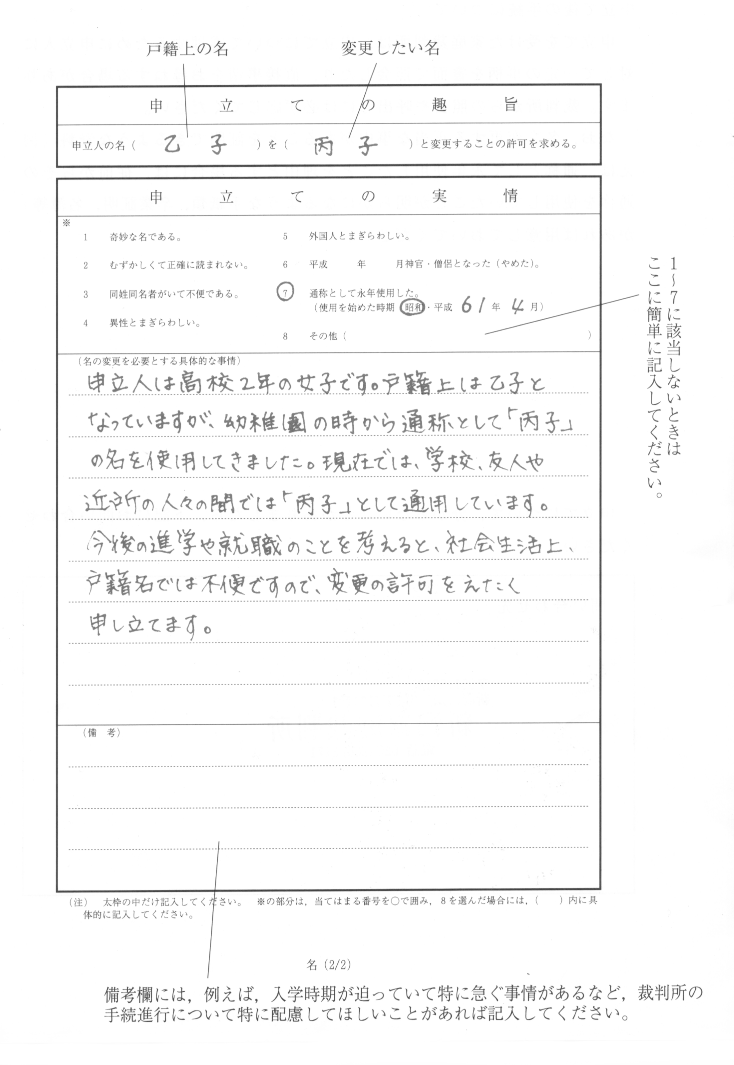 戸籍上の名　変更したい名
申立ての趣旨
申立人の名（　乙　子　）を（　丙　子　）と変更することの許可を求める。
申立ての実情
※
1　奇妙な名である。
2　むずかしくて正確に読まれない。
3　同姓同名者がいて不便である。
4　異性とまぎらわしい。
5　外国人とまぎらわしい。
6　平成　　年　　月神官・僧侶となった（やめた）。
7　通称として永年使用した。
（使用を始めた時期　昭和・平成　61年　4月）
8　その他（　　　）
（名の変更を必要とする具体的な事情）
申立人は高校2年の女子です。戸籍上は乙子と
なっていますが、幼稚園の時から通称として「丙子」
の名を使用してきました。現在では、学校、友人や
近所の人々の間では「丙子」として通用しています。
今後の進学や就職のことを考えると、社会生活上、
戸籍名では不便ですので、変更の許可をえたく
申し立てます。
（備　考）
（注）　太枠の中だけ記入してください。　※の部分は，当てはまる番号を○で囲み，8を選んだ場合には，（　　）内に具
体的に記入してください。
名（2/2）
1～7に該当しないときは
ここに簡単に記入してください。
備考欄には，例えば，入学時期が迫っていて特に急ぐ事情があるなど，裁判所の
手続進行について特に配慮してほしいことがあれば記入してください。